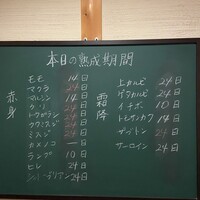 本日の熟成期間
赤身
モモ 14日
マクラ 24日
マルシン 14日
クリ 24日
トウガラシ 24日
クワミスジ 24日
ミスジ 24日
カメノコ 一日
ランプ 10日
ヒレ 24日
シャトーブリアン 24日
霜降
上カルビ 24日
ゲタカルビ 24日
イチボ 10日
トモサンカク 14日
ザブトン 24日
サーロイン 24日